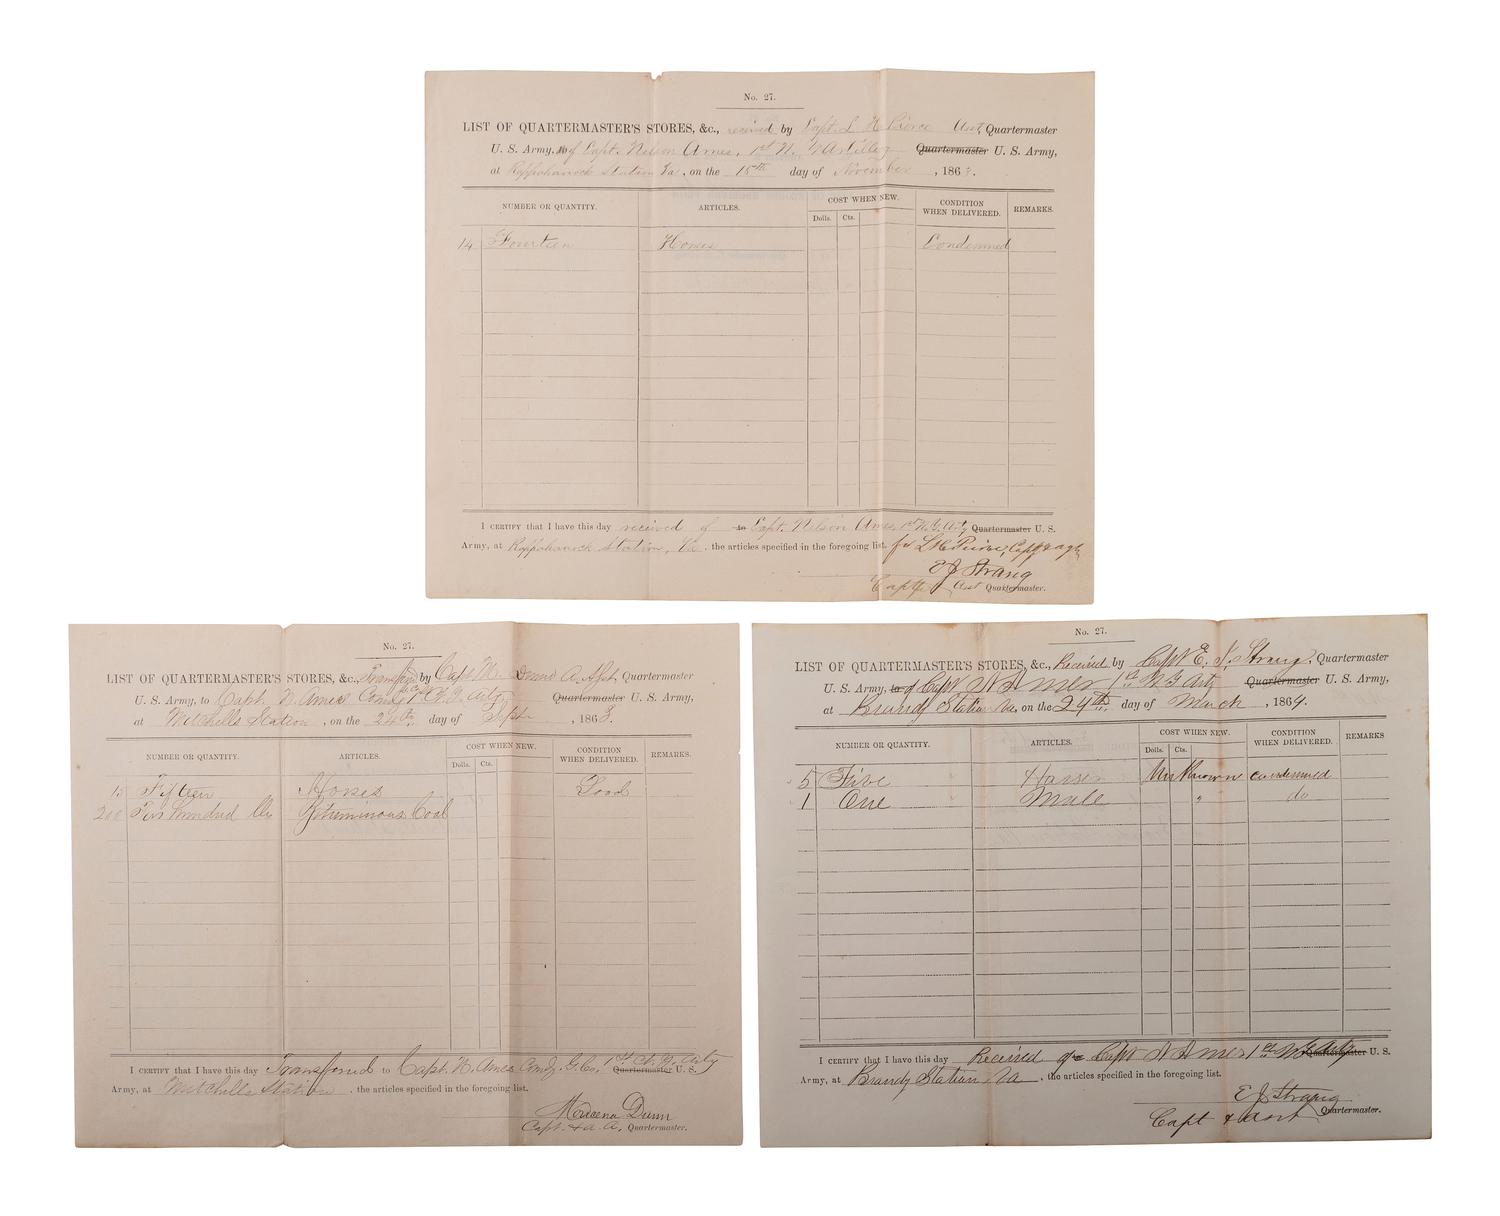 No. 27.
LIST OF QUARTERMASTER'S STORES, &c., received by Capt. L H Pierce Asst. Quartermaster
U. S. Army, of Capt. Nelson Ames, 1st N. Y Artillery Quartermaster U. S. Army,
at Rappohanock Station Va, on the 15th day of November, 1863.
NUMBER OR QUANTITY. ARTICLES. COST WHEN NEW. CONDITION WHEN DELIVERED. REMARKS.
Dolls. Cts.
14 Fourteen Horses Condemned
I CERTIFY that I have this day received of to Capt. Nelson Ames, 1st N.Y. Arty Quartermaster U. S.
Army, at Rappohanock Station, Va. the articles specified in the foregoing list. for L H Pierce, Capt & aqm
E J Strang
Capt & Asst Quartermaster.
No. 27.
LIST OF QUARTERMASTER'S STORES, &c., Transferred by Capt. M. Dunn A. Asst. Quartermaster
U. S. Army, to Capt. N. Ames Comdg Co. G 1st N.Y. Arty Quartermaster U. S. Army,
at Mitchells Station, on the 24th day of Sept, 1863.
NUMBER OR QUANTITY. ARTICLES. COST WHEN NEW. CONDITION WHEN DELIVERED. REMARKS.
Dolls. Cts.
15 Fifteen Horses Good
200 Two Hundred lbs Bituminous Coal
I CERTIFY that I have this day Transferred to Capt. N. Ames Comdg. G. Co., 1st N. Y. Arty Quartermaster U. S.
Army, at Mitchells Station. the articles specified in the foregoing list.
Dunn
Capt. & a. A. Quartermaster.
No. 27.
LIST OF QUARTERMASTER'S STORES, &c., Received by Capt E. J. Strang, Quartermaster
U. S. Army, to of Capt N Ames 1st N Y Arty Quartermaster U. S. Army,
at Brandy Station Va, on the 29th day of March, 1864.
NUMBER OR QUANTITY. ARTICLES. COST WHEN NEW. CONDITION WHEN DELIVERED. REMARKS
Dolls. Cts.
5 Five Horses Unknown condemned
1 One Mule " do
I CERTIFY that I have this day Received of Capt N Ames 1st N Y Arty Quartermaster U. S.
Army, at Brandy Station Va, the articles specified in the foregoing list.
E J Strang
Capt & Asst Quartermaster.